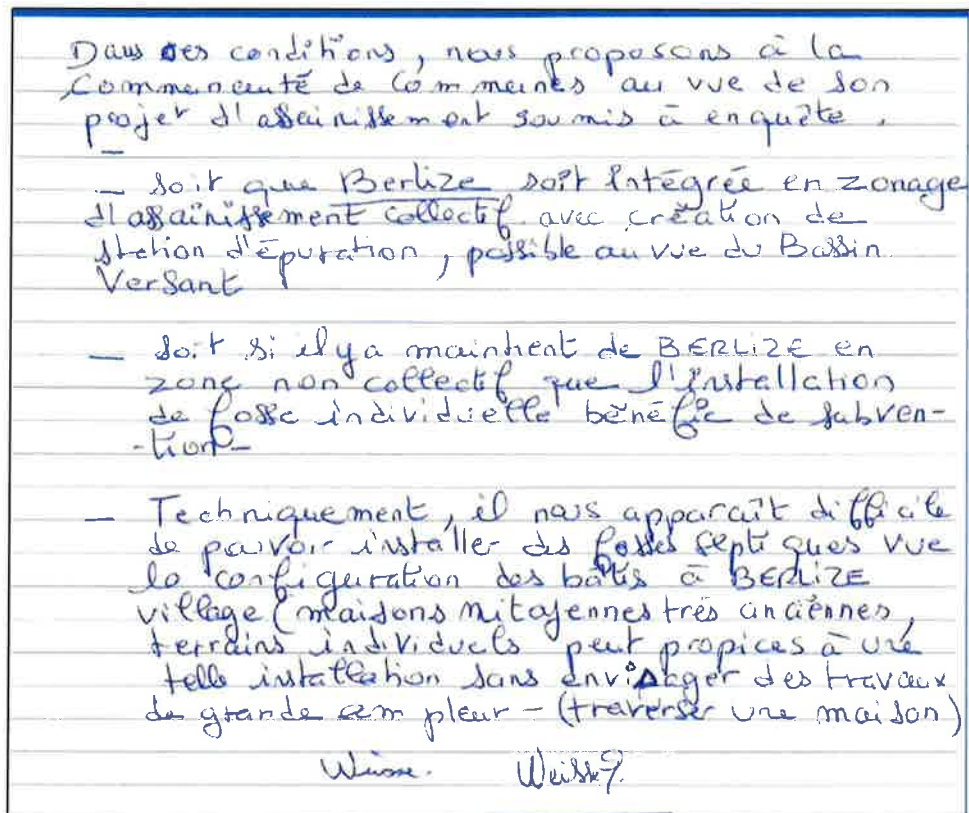 Dans ces conditions, nous proposons à la
Communauté de Communes au vue de son
projet d'assainissement soumis à enquête.
— soit que Berlize soit intégrée en zonage
d'assainissement collectif avec création de
station d'épuration, possible au vue du Bassin
Versant
— soit si il y a maintient de BERLIZE en
zone non collectif que l'installation
de fosse individuelle bénéfic de subven-
-tion-
— Techniquement, il nous apparaît difficile
de pouvoir installer des fosses septiques vue
la configuration des bâtis à BERLIZE
village (maisons mitoyennes très anciennes,
terrains individuels peut propices à une
telle installation sans envisager des travaux
de grande ampleur - (traverser une maison)